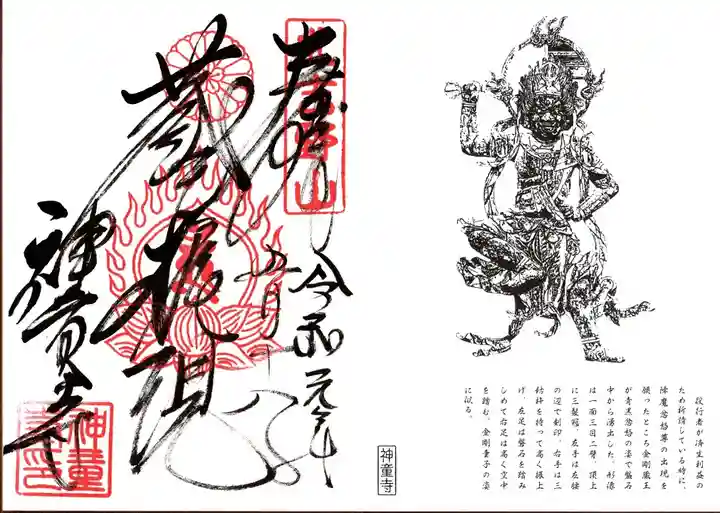 奉拝
令和元年
五月十八日
蔵王権現
神童寺
役行者が済生利益の
ため祈請している時に、
降魔忿怒尊の出現を
願ったところ金剛蔵王
が青黒忿怒の姿で盤石
中から湧出した。形像
は一面三目二臂、頂上
に三髪冠、左手は左腰
の辺で剣印、右手は三
鈷杵を持って高く振上
げ、左足は盤石を踏み
しめて右足は高く空中
を踏む。金剛童子の姿
に似る。
神童寺